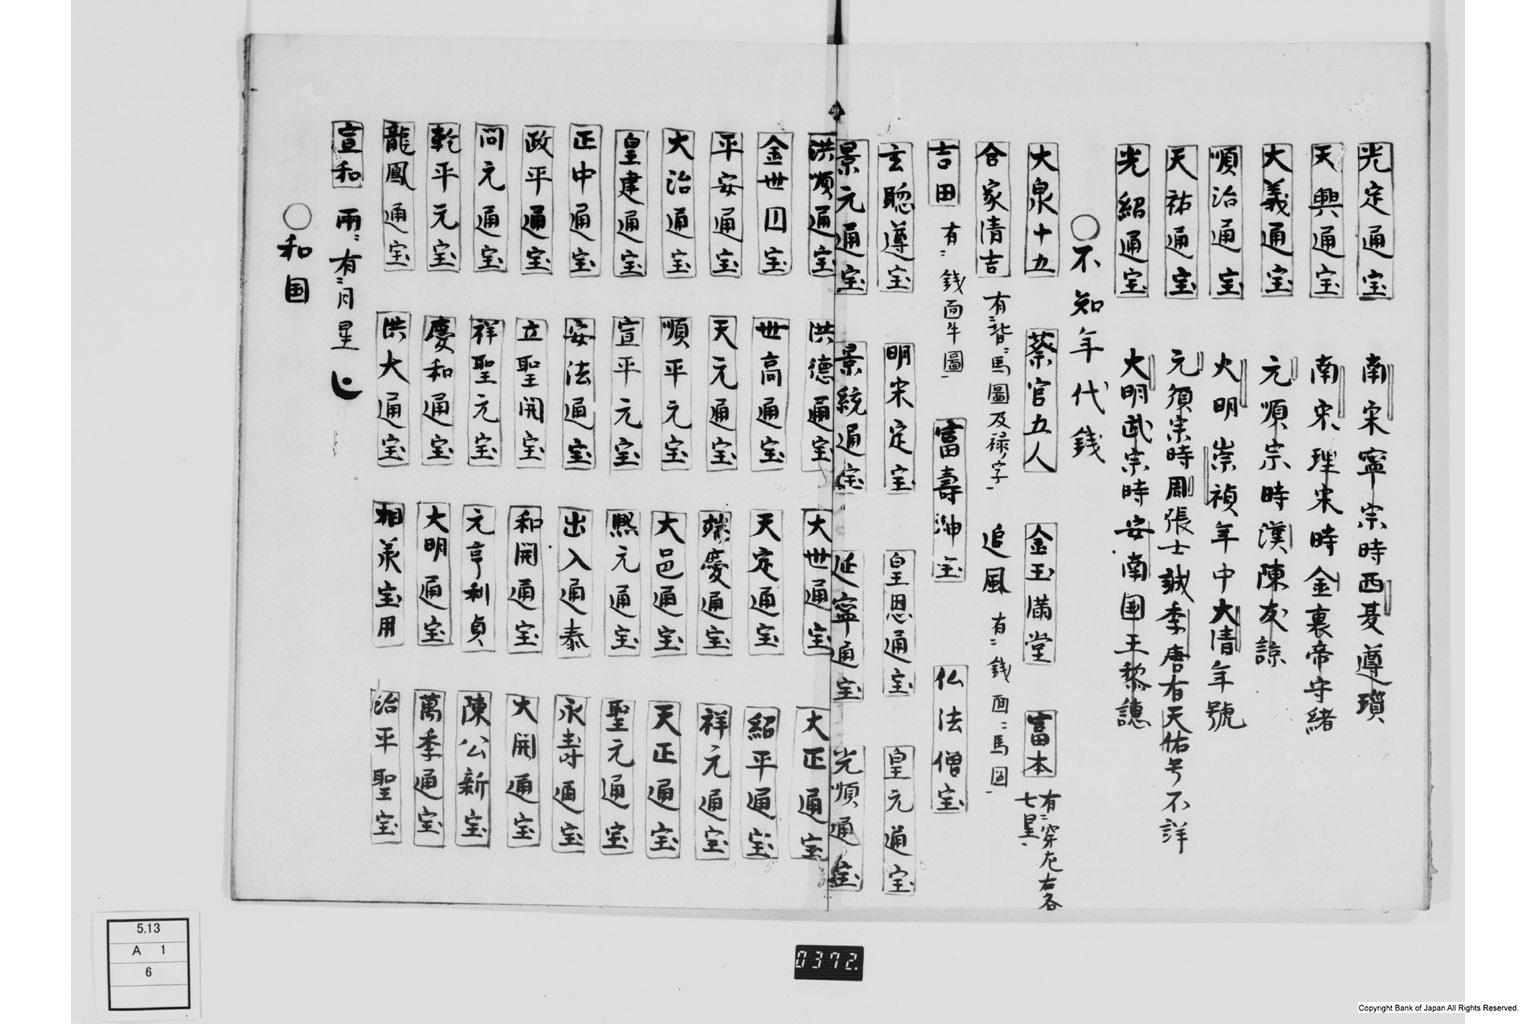 光定通宝 南宋寧宗時西夏遵瓆
天興通宝 南宋理宗時金裏帝守緒
大義通宝 元順宗時漢陳友諒
順治通宝 大明崇禎年中大清年號
天祐通宝 元須宗時周張士誠季唐有天佑号不詳
光紹通宝 大明武宗時安南国王黎譓
○不知年代錢
大泉十五 蔡官五人 金玉満堂 富本 有穿左右各七星
合家清吉 有背馬圖及禄字 追風 有錢面馬図
吉田 有錢面牛圖 富壽神宝 仏法僧宝
玄聡尊宝 明宋定宝 皇恩通宝 皇元通宝
景元通宝 景統通宝 延寧通宝 光順通宝
洪順通宝 洪德通宝 大世通宝 大正通宝
金世囙宝 世高通宝 天定通宝 紹平通宝
平安通宝 天元通宝 端慶通宝 祥元通宝
大治通宝 順平元宝 大邑通宝 天正通宝
皇建通宝 宣平元宝 熙元通宝 聖元通宝
正中通宝 安法通宝 出入通泰 永壽通宝
政平通宝 立聖開宝 和開通宝 大開通宝
問元通宝 祥聖元宝 元亨利貞 陳公新宝
乾平元宝 慶和通宝 大明通宝 萬季通宝
龍鳳通宝 洪大通宝 相羨宝用 治平聖宝
宣和 兩有月星
○和国
5.13
A 1
6
0372.
Copyright Bank of Japan All Rights Reserved.